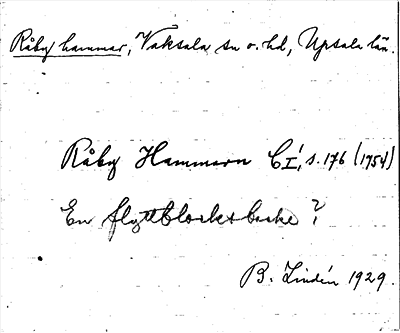 Råby hammar, Vaksala sn o. hd, Upsala län.
Råby Hammarn CI, s. 176 (1754)
En flyttblocksbacke?
B. Lindén 1929.